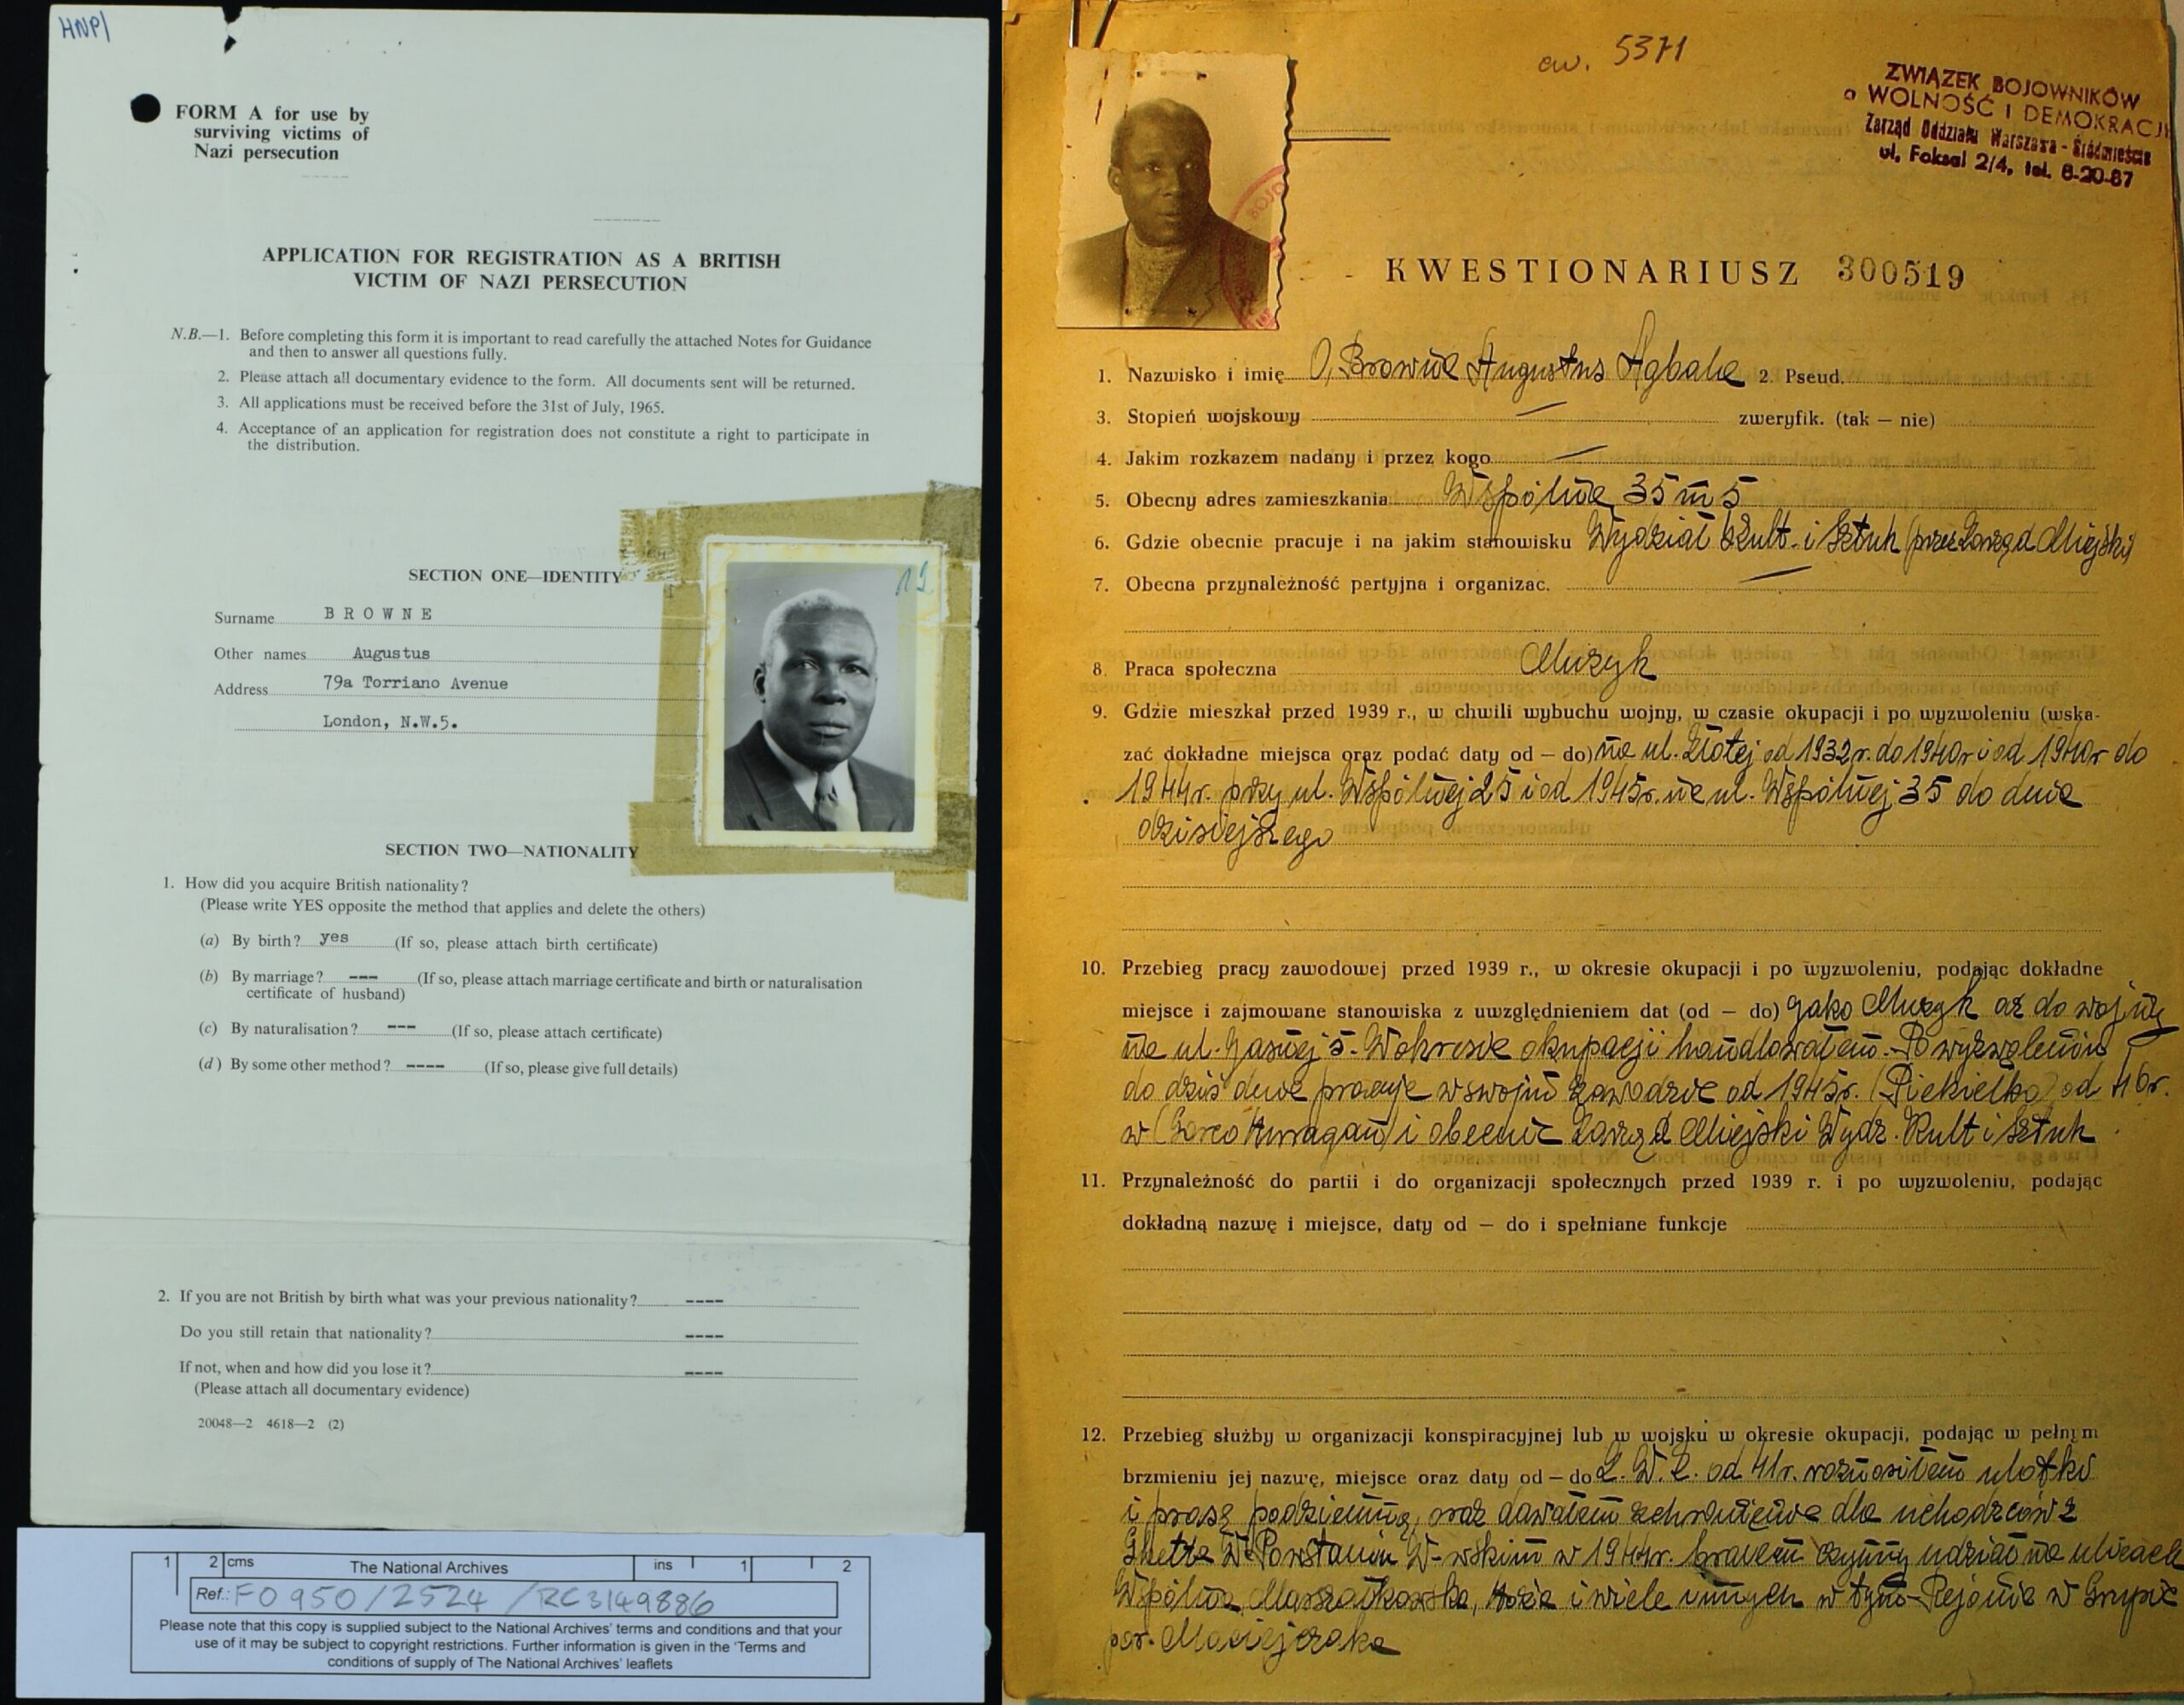 HNP/
FORM A for use by
surviving victims of
Nazi persecution
APPLICATION FOR REGISTRATION AS A BRITISH
VICTIM OF NAZI PERSECUTION
N.B.—1. Before completing this form it is important to read carefully the attached Notes for Guidance
and then to answer all questions fully.
2. Please attach all documentary evidence to the form. All documents sent will be returned.
3. All applications must be received before the 31st of July, 1965.
4. Acceptance of an application for registration does not constitute a right to participate in
the distribution.
SECTION ONE—IDENTITY
Surname BROWNE
Other names Augustus
Address 79a Torriano Avenue
London, N.W.5.
SECTION TWO—NATIONALITY
1. How did you acquire British nationality?
(Please write YES opposite the method that applies and delete the others)
(a) By birth? yes (If so, please attach birth certificate)
(b) By marriage? --- (If so, please attach marriage certificate and birth or naturalisation
certificate of husband)
(c) By naturalisation? --- (If so, please attach certificate)
(d) By some other method? ---- (If so, please give full details)
2. If you are not British by birth what was your previous nationality? ----
Do you still retain that nationality? ----
If not, when and how did you lose it? ----
(Please attach all documentary evidence)
20048—2 4618—2 (2)
1 2 cms The National Archives ins 1 2
Ref.: FO 950/2524 /RC3149886
Please note that this copy is supplied subject to the National Archives' terms and conditions and that your
use of it may be subject to copyright restrictions. Further information is given in the 'Terms and
conditions of supply of The National Archives' leaflets
ew. 5371
ZWIĄZEK BOJOWNIKÓW
o WOLNOŚĆ I DEMOKRACJĘ
Zarząd Oddziału Warszawa - Śródmieście
ul. Foksal 2/4, tel. 8-20-87
KWESTIONARIUSZ 300519
1. Nazwisko i imię O, Browne Augustus Agbale 2. Pseud.
3. Stopień wojskowy — zweryfik. (tak — nie)
4. Jakim rozkazem nadany i przez kogo —
5. Obecny adres zamieszkania Wspólna 35 m 5
6. Gdzie obecnie pracuje i na jakim stanowisku Wydział Kult. i Sztuk (przez Zarząd Miejski)
7. Obecna przynależność partyjna i organizac. —
8. Praca społeczna Muzyk
9. Gdzie mieszkał przed 1939 r., w chwili wybuchu wojny, w czasie okupacji i po wyzwoleniu (wska-
zać dokładne miejsca oraz podać daty od — do) na ul. Złotej od 1932r. do 1940r i od 1940r do
1944r. przy ul. Wspólnej 25 i od 1945r. na ul. Wspólnej 35 do dnia
dzisiejszego
10. Przebieg pracy zawodowej przed 1939 r., w okresie okupacji i po wyzwoleniu, podając dokładne
miejsce i zajmowane stanowiska z uwzględnieniem dat (od — do) Jako Muzyk aż do wojny
na ul. Jasnej 5. W okresie okupacji handlowałem. Po wyzwoleniu
do dziś dnia pracuję w swojm zawodzie od 1945r. (Piekiełko) od 46r.
w i obecnie Zarząd Miejski Wydz. Kult i Sztuk
11. Przynależność do partii i do organizacji społecznych przed 1939 r. i po wyzwoleniu, podając
dokładną nazwę i miejsce, daty od — do i spełniane funkcje
12. Przebieg służby w organizacji konspiracyjnej lub w wojsku w okresie okupacji, podając w pełnym
brzmieniu jej nazwę, miejsce oraz daty od — do Z. W. Z. od 41r. roznosiłem ulotki
i prasę podziemną, oraz dawałem schronienie dla uchodźców z
Ghetta W Powstaniu W-wskim w 1944r. brałem czynny udział na ulicach
Wspólna, Marszałkowska, Hoża i wiele innych w tym Rejonie w Grupie
por. Maciejczaka